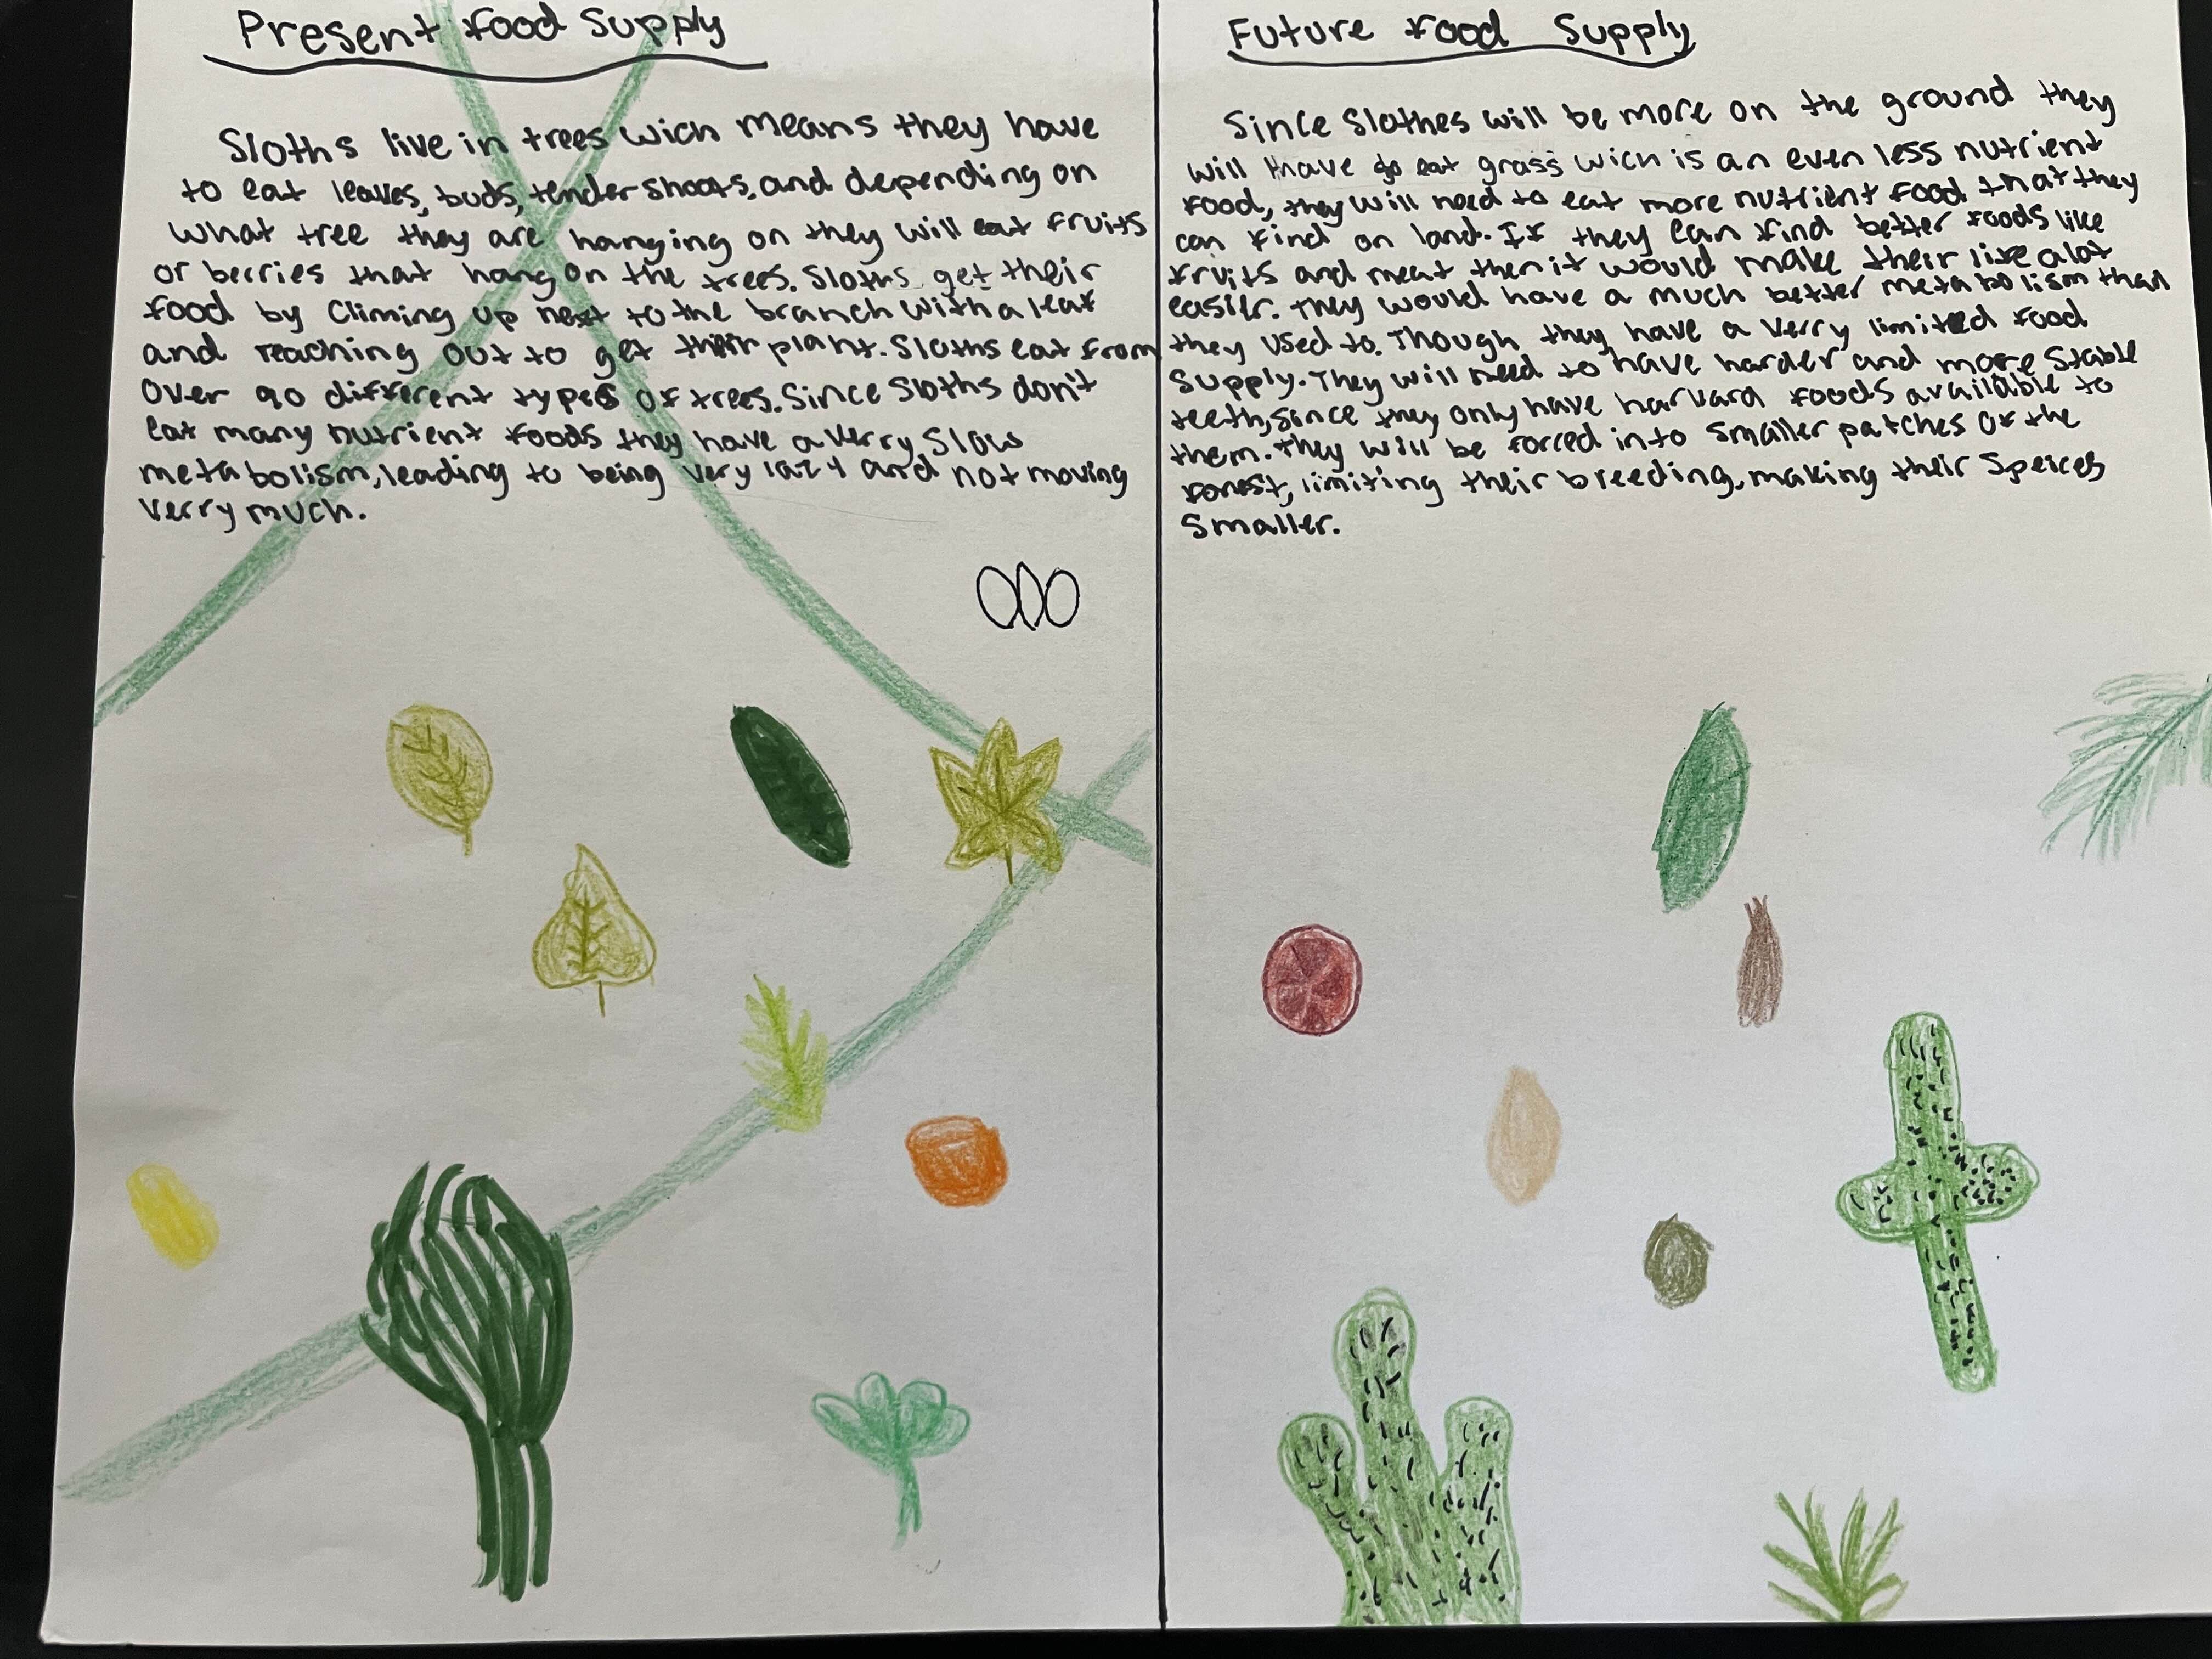 Present food Supply
Sloths live in trees wich means they have
to eat leaves, buds, tender shoots, and depending on
what tree they are hanging on they will eat fruits
or berries that hang on the trees. Sloths get their
food by Climing up next to the branch with a leaf
and reaching out to get their plant. Sloths eat from
over 90 different types of trees. Since Sloths don't
eat many nutrient foods they have a verry Slow
metabolism, leading to being very lazy and not moving
verry much.
Future food Supply
Since Slothes will be more on the ground they
will have to eat grass wich is an even less nutrient
food, they will need to eat more nutrient food that they
can find on land. If they can find better foods like
fruits and meat then it would make their life alot
easier. They would have a much better metabolism than
they used to. Though they have a verry limited food
supply. They will need to have harder and more Stable
teeth, since they only have harvard foods available to
them. They will be forced into smaller patches of the
forest, limiting their breeding, making their Speices
Smaller.